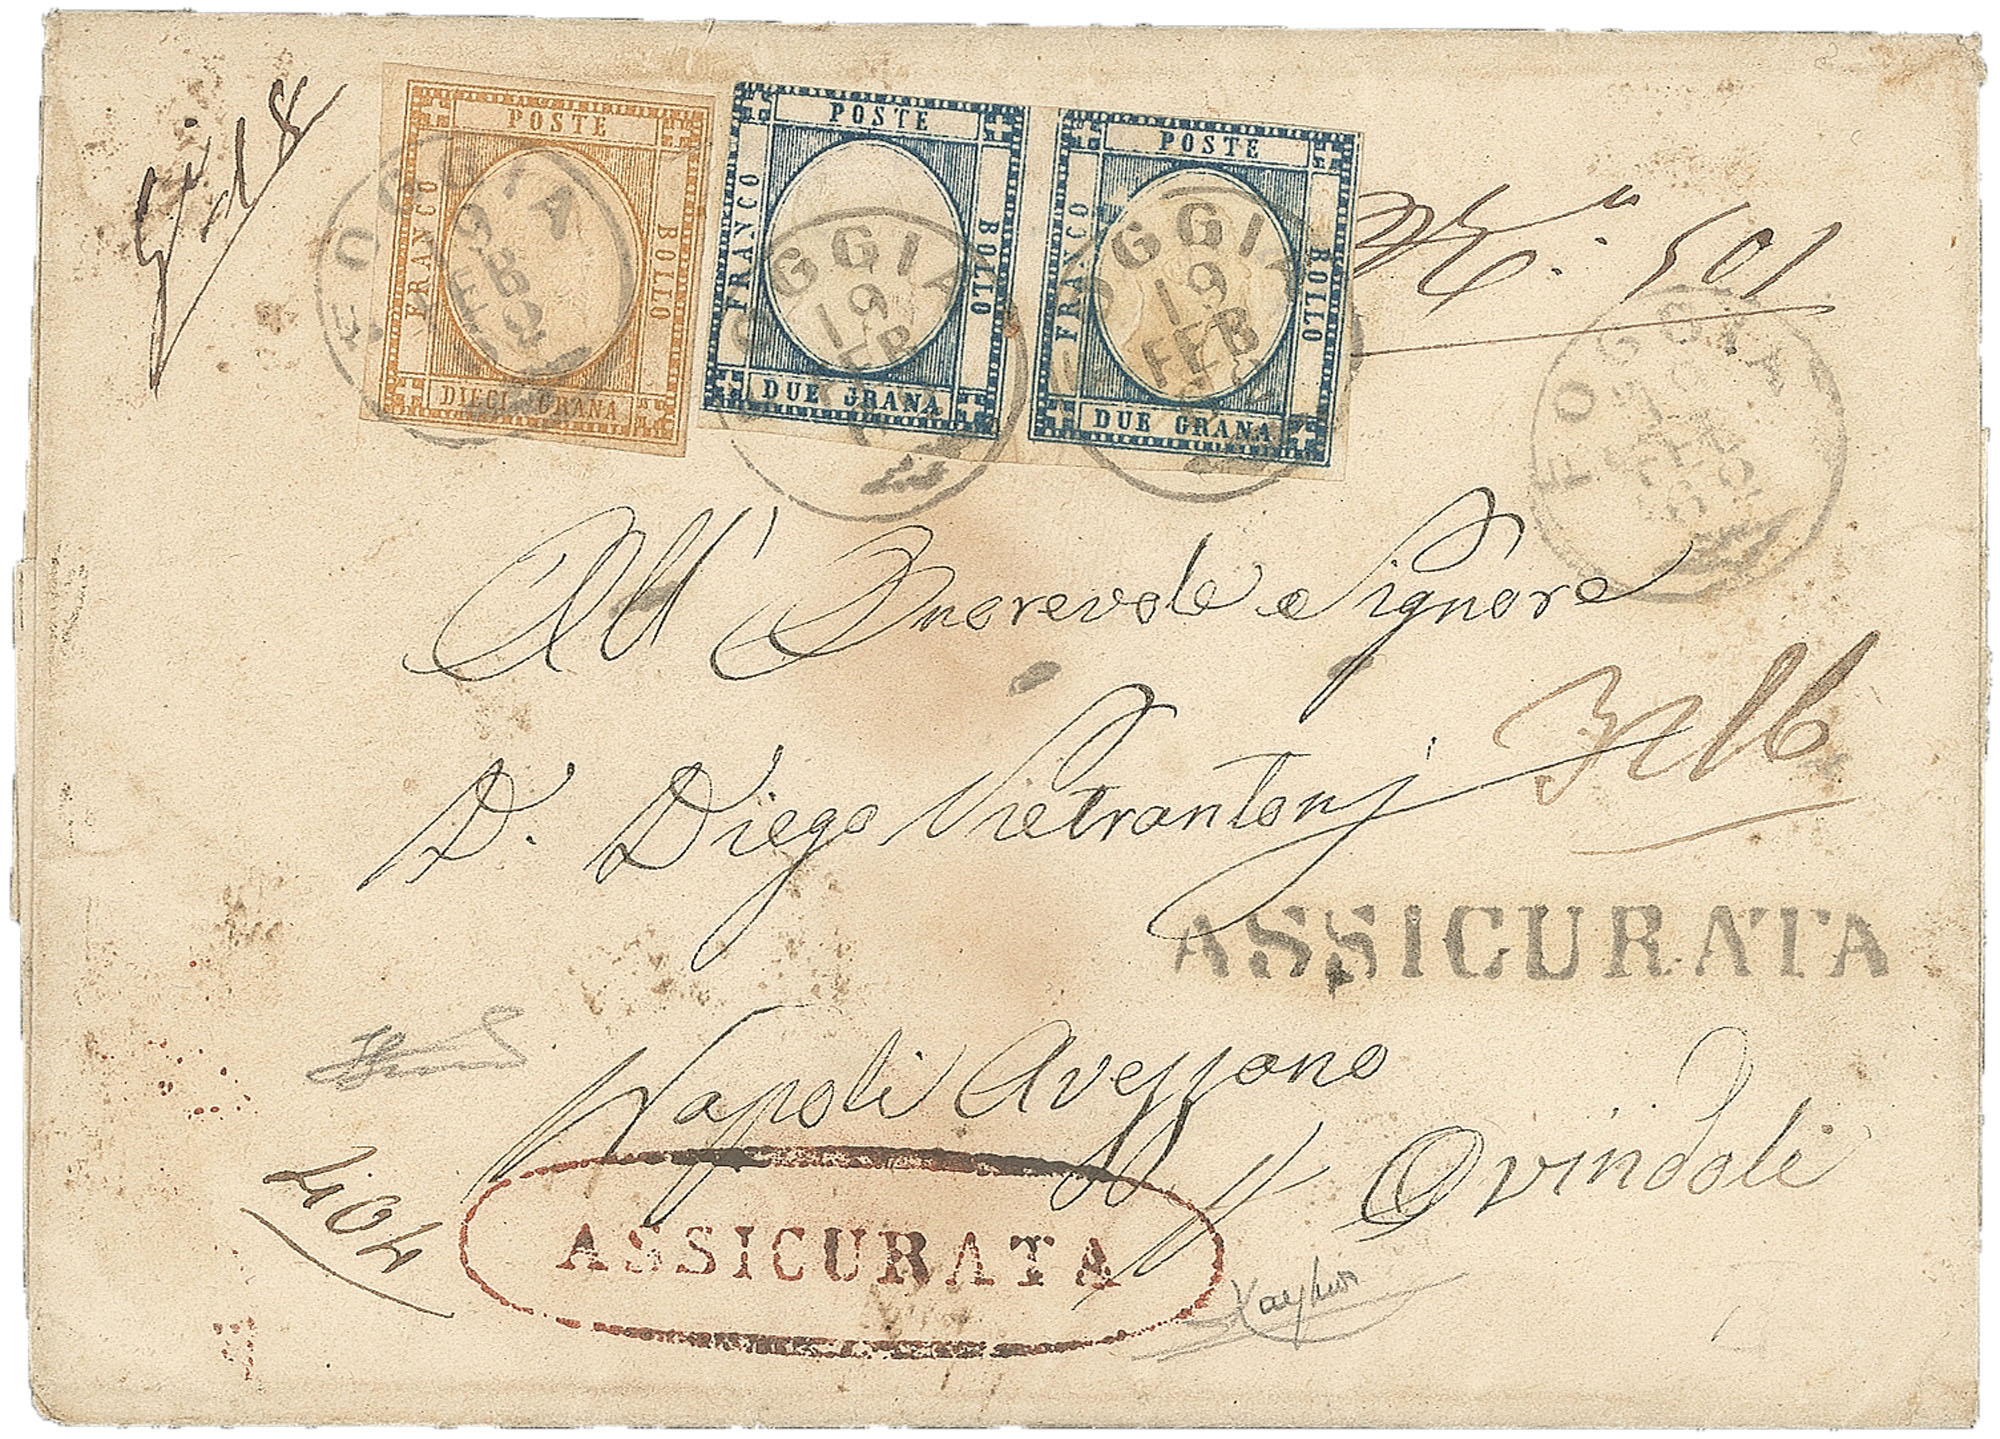 POSTE
FRANCO
BOLLO
DIECI GRANA
POSTE
FRANCO
BOLLO
DUE GRANA
POSTE
FRANCO
BOLLO
DUE GRANA
FOGGIA
19
FEB
OGGIA
19
FEB
OGGIA
19
FEB
FOGGIA
501
All' Onorevole e Signore
D. Diego Pietrantonj
ASSICURATA
Napoli Avezzano
Ovindoli
404
ASSICURATA